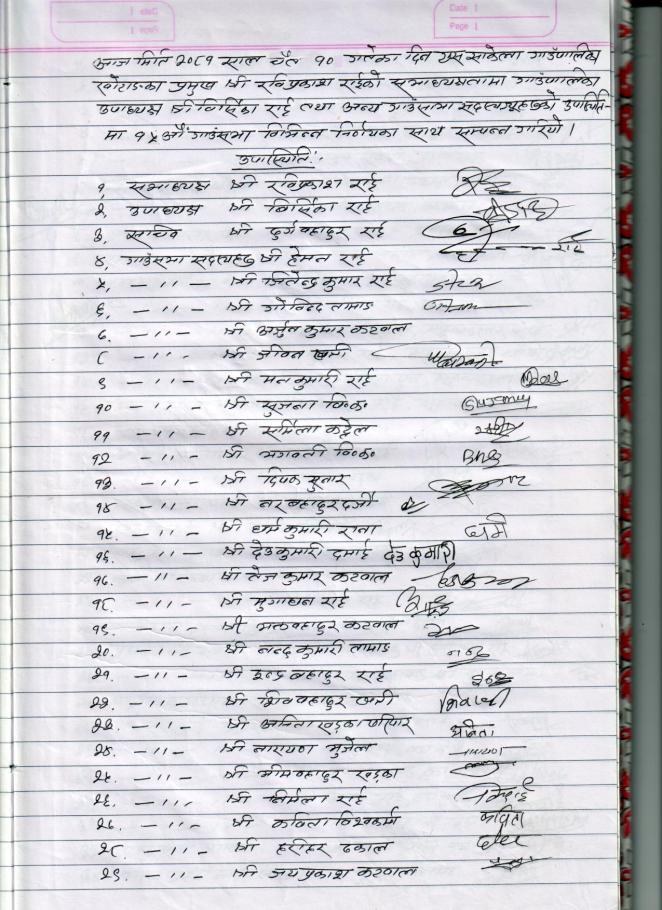 Date |
Page |
आज मिति २०८१ साल चैत १० गतेका दिन यस साकेला गाउँपालिका
खोटाङका प्रमुख श्री रविप्रकाश राईको सभाध्यक्षतामा गाउँपालिका
उपाध्यक्ष श्री विर्सिका राई तथा अन्य गाउँसभा सदस्यहरूको उपस्थिति-
मा १५ औं गाउँसभा विभिन्न निर्णयका साथ सम्पन्न गरियो ।
उपास्थिति:-
१, सभाध्यक्ष श्री रविप्रकाश राई
२, उपाध्यक्ष श्री विर्सिका राई
३, सचिव श्री दुर्गबहादुर राई
४, गाउँसभा सदस्यहरु श्री हेमन राई
५, - ,, - श्री जितेन्द्र कुमार राई
६, - ,, - श्री गोविन्द तामाङ
७. - ,, - श्री अर्जुन कुमार कटवाल
८ - ,, - श्री जीवन खत्री
९ - ,, - श्री मनकुमारी राई
१० - ,, - श्री सुजना वि.क.
११ - ,, - श्री सर्मिला कट्टेल
१२ - ,, - श्री भगवती वि.क.
१३. - ,, - श्री दिपक सुनार
१४ - ,, - श्री नरबहादुर दर्जी
१५. - ,, - श्री धर्मकुमारी राना धर्म
१६. - ,, - श्री देउकुमारी दमाई देउकुमारी
१७. - ,, - श्री तेज कुमार कटवाल
१८. - ,, - श्री मुगाधन राई
१९. - ,, - श्री भक्तबहादुर कटवाल
२०. - ,, - श्री नन्दकुमारी तामाङ नन्द
२१. - ,, - श्री इन्द्र बहादुर राई इन्द्र
२२. - ,, - श्री शिवबहादुर खत्री
२३. - ,, - श्री अनिता खड्का परियार अनिता
२४. - ,, - श्री नारायण भुजेल
२५. - ,, - श्री भीमबहादुर खड्का
२६. - ,, - श्री निर्मला राई
२७. - ,, - श्री कविता विश्वकर्मा कविता
२८. - ,, - श्री हरीहर ढकाल
२९. - ,, - श्री जयप्रकाश कटवाल